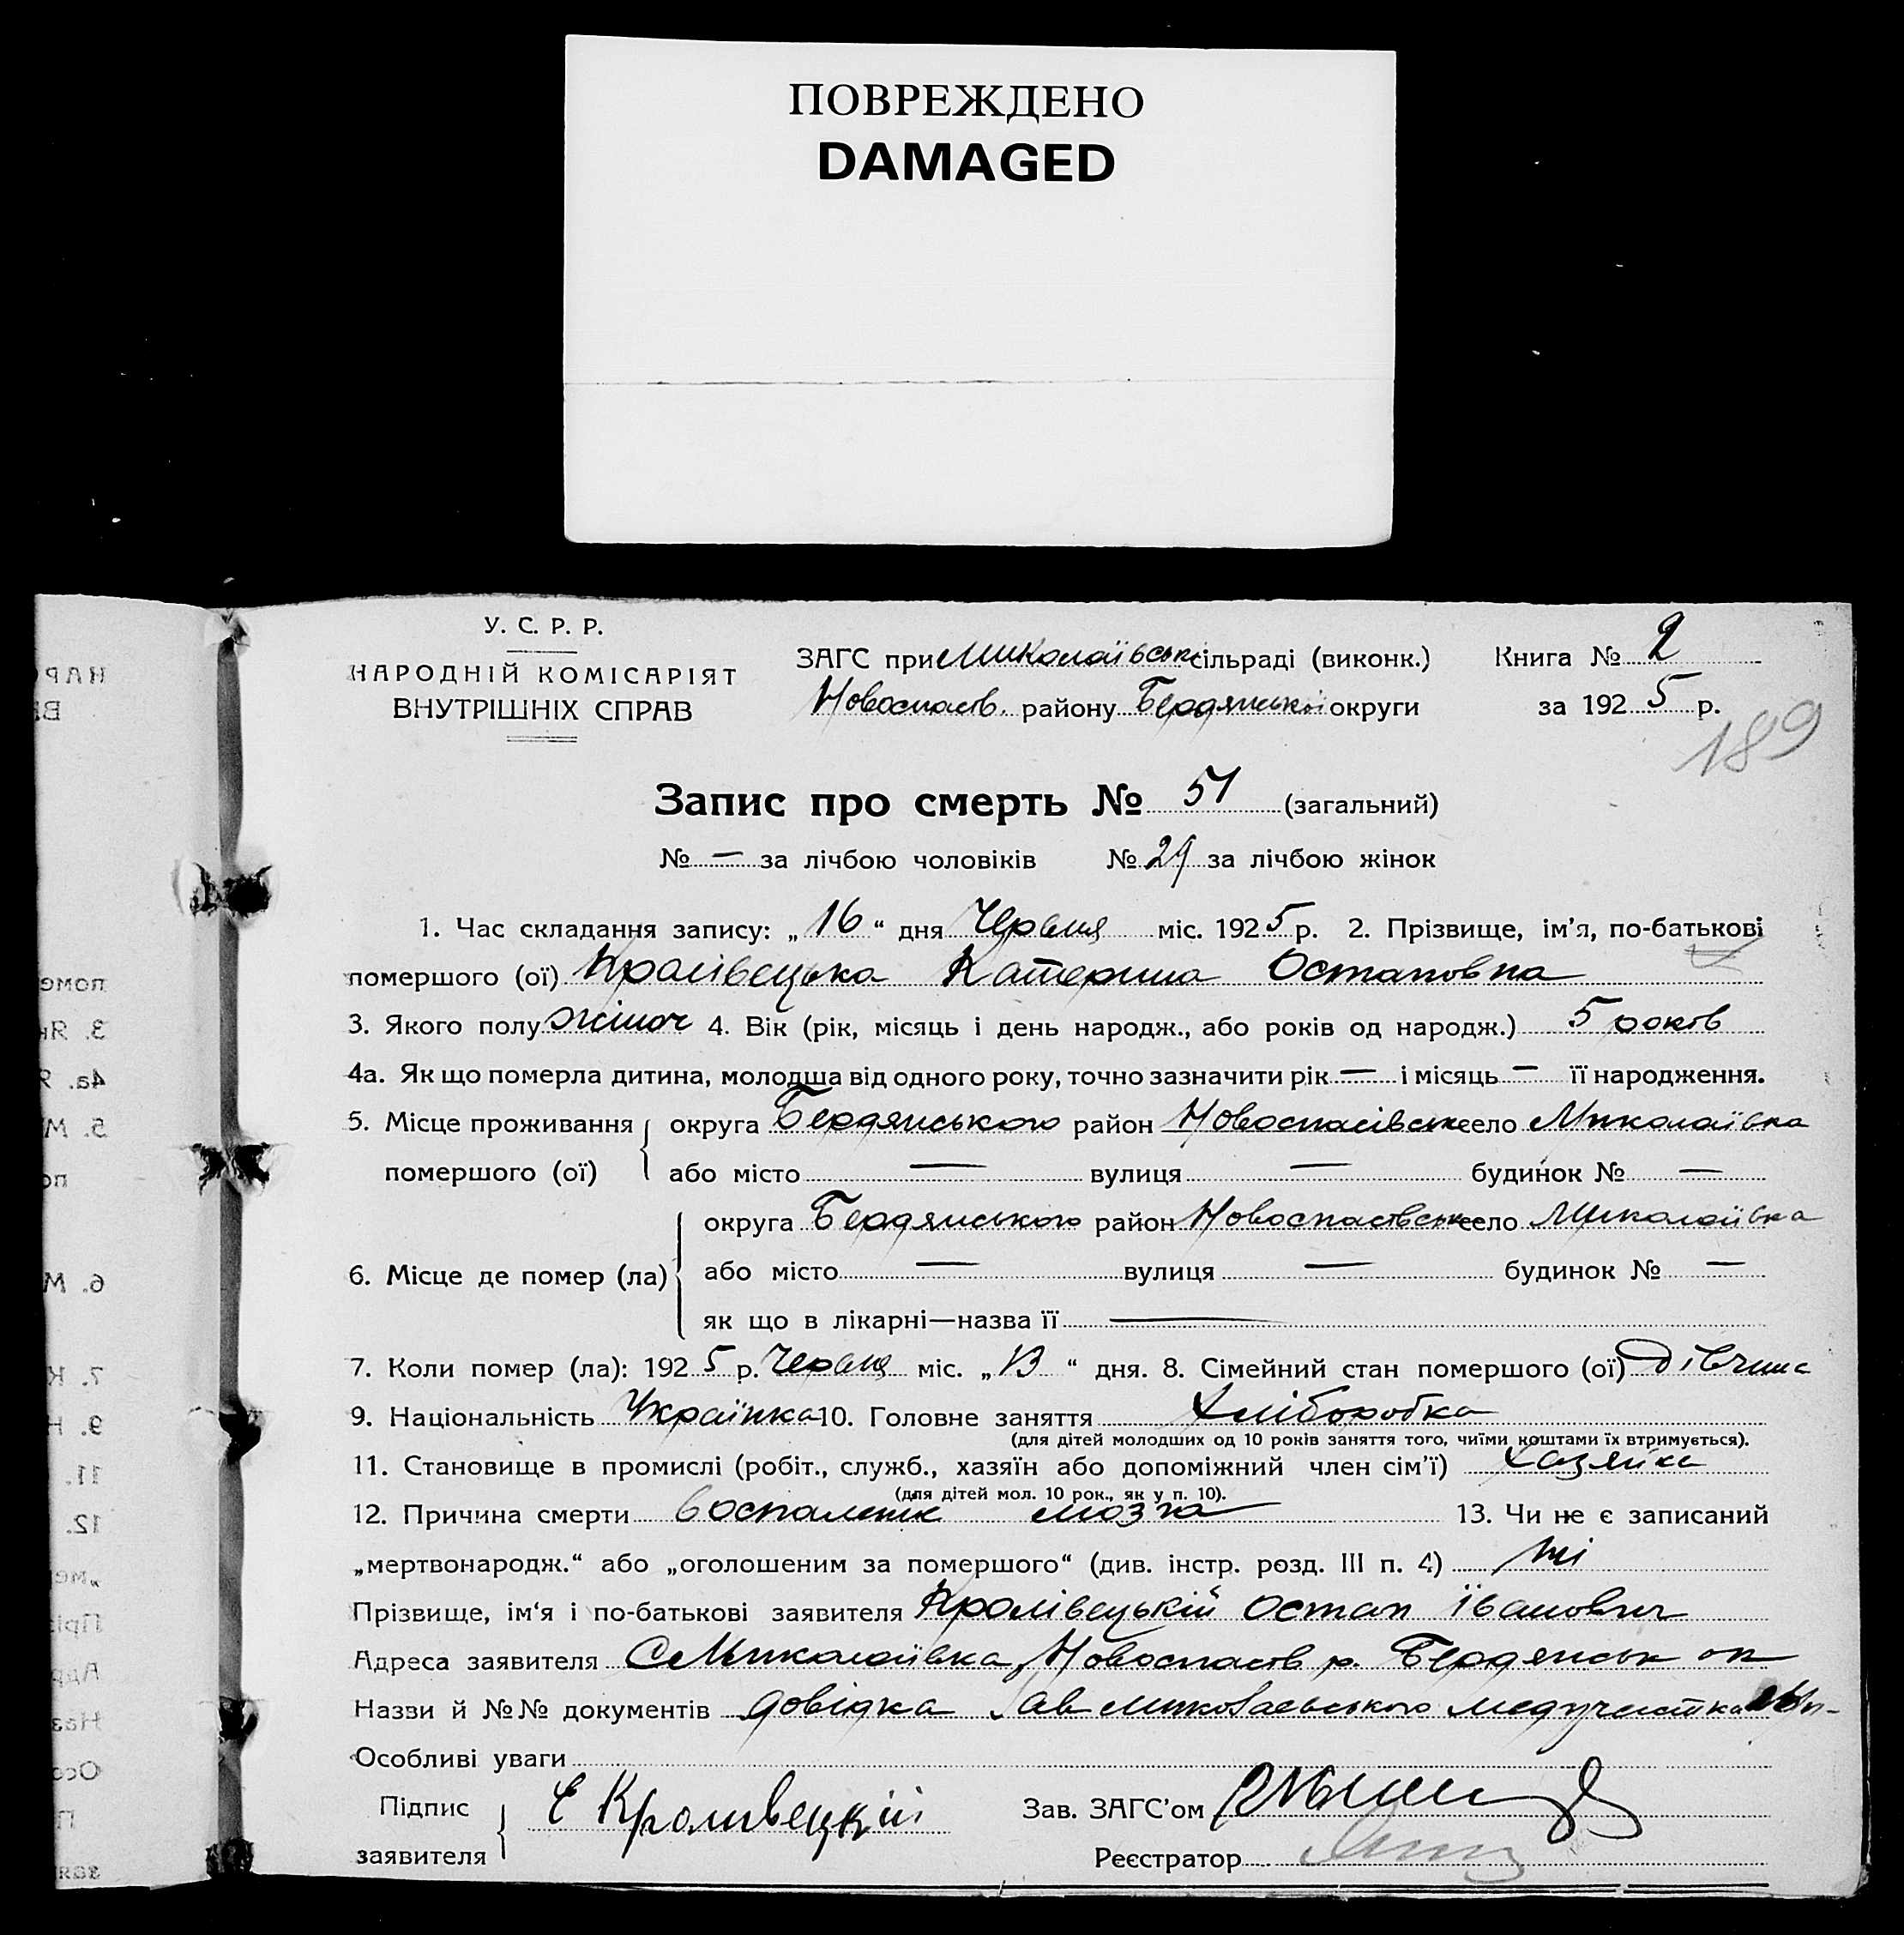 ПОВРЕЖДЕНО
DAMAGED
У. С. Р. Р.
НАРОДНІЙ КОМІСАРІЯТ
ВНУТРІШНІХ СПРАВ
ЗАГС при Миколаївськ сільраді (виконк.)
Новоспасів. району Бердянської округи
Книга № 2
за 1925 р.
189
Запис про смерть № 51 (загальний)
№ — за лічбою чоловіків № 24 за лічбою жінок
1. Час складання запису: „16“ дня Червня міс. 1925 р. 2. Прізвище, ім’я, по-батькові
помершого (ої) Кролівецька Катерина Остаповна
3. Якого полу жіноч 4. Вік (рік, місяць і день народж., або років од народж.) 5 років
4а. Як що померла дитина, молодша від одного року, точно зазначити рік — і місяць — її народження.
5. Місце проживання помершого (ої) округа Бердянського район Новоспасівськ село Миколаївка
або місто — вулиця — будинок № —
6. Місце де помер (ла) округа Бердянського район Новоспасівськ село Миколаївка
або місто — вулиця — будинок № —
як що в лікарні—назва її —
7. Коли помер (ла): 1925 р. Червня міс. „13“ дня. 8. Сімейний стан помершого (ої) дівчина
9. Національність Українка 10. Головне заняття Хліборобка
(для дітей молодших од 10 років заняття того, чиїми коштами їх втримується).
11. Становище в промислі (робіт., служб., хазяїн або допоміжний член сім’ї) хазяйка
(для дітей мол. 10 рок., як у п. 10).
12. Причина смерти воспаленіє мозга 13. Чи не є записаний
„мертвонародж.“ або „оголошеним за помершого“ (див. інстр. розд. III п. 4) ні
Прізвище, ім‘я і по-батькові заявителя Кролівецькій Остап Іванович
Адреса заявителя С Миколаївка, Новоспасів р. Бердянськ ок
Назви й №№ документів довідка Зав Миколаевського медучастка
Особливі уваги
Підпис заявителя Є Кроливецкій
Зав. ЗАГС’ом
Реєстратор